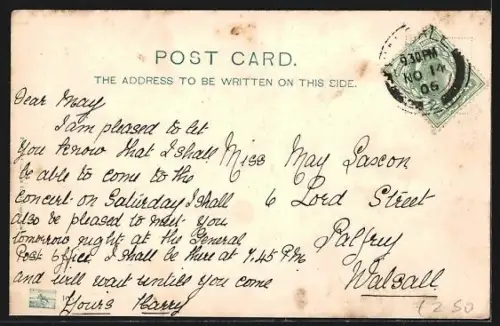 POST CARD.
THE ADDRESS TO BE WRITTEN ON THIS SIDE.
9.30PM
NO 14
06
Dear May
I am pleased to let
you know that I shall
be able to come to the
concert on Saturday I shall
also be pleased to meet you
tomorrow night at the General
Post Office, I shall be there at 7.45 P.m
and will wait until you come
Yours Harry
Miss May Gascon
6 Lord Street
Palfrey
Walsall
12 50